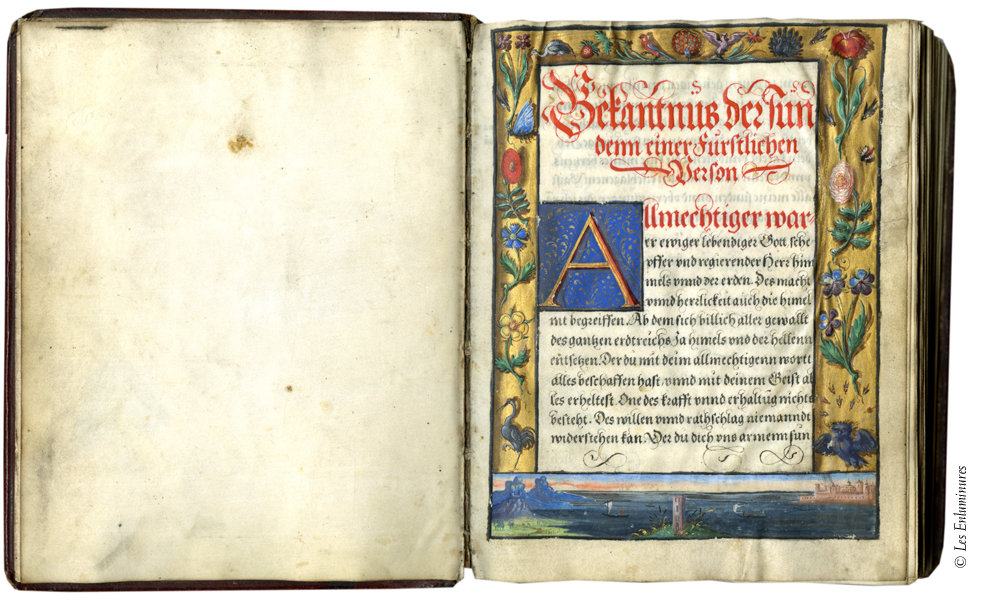 Bekantnus der sun
denn einer Fürstlichen
Person
Allmechtiger war-
er ewiger lebendiger Gott sche
pffer vnd regierender Herr him
mels vnnd der erden. Des macht
vnnd herrlickeit auch die himel
nit begreiffen. Ab dem sich billich aller gewallt
des gantzen erdtreichs Ja himels vnd der hellenn
entsetzen. Der du mit deim allmechtigenn wortt
alles beschaffen hast, vnnd mit deinem Geist al
les erheltest. One des krafft vnnd erhaltug nichts
besteht. Des willen vnnd rathschlag niemanndt
widerstehen kan. Der du dich vns armenn sun
© Les Enluminures